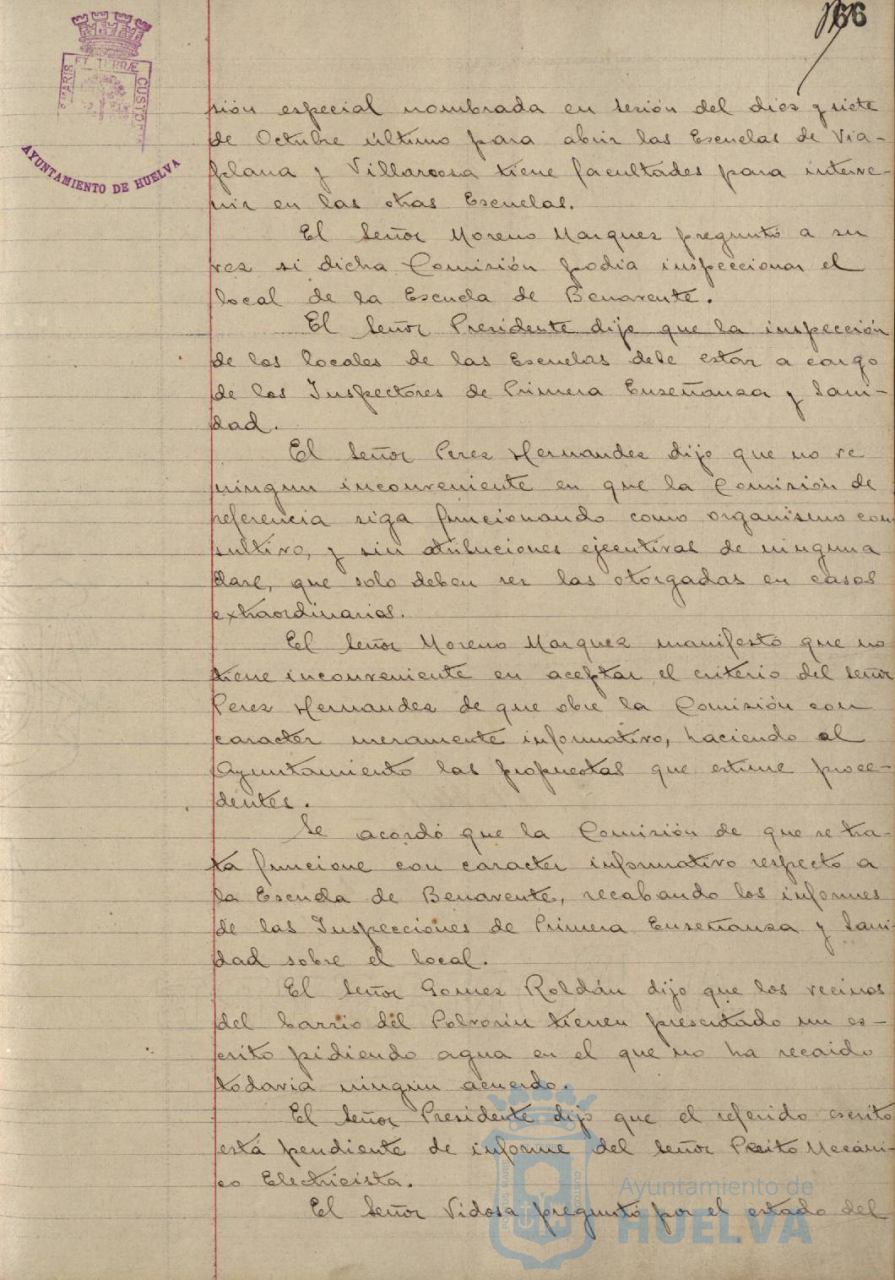 66
PORTUS MARIS ET TERRÆ CUSTODIA
AYUNTAMIENTO DE HUELVA
sión especial nombrada en sesión del diez y siete
de Octubre último para abrir las Escuelas de Via-
plana y Villarrosa tiene facultades para interve-
nir en las otras Escuelas.
El Señor Moreno Marquez preguntó a su
vez si dicha Comisión podia inspeccionar el
local de la Escuela de Benavente.
El Señor Presidente dijo que la inspección
de los locales de las Escuelas debe estar a cargo
de los Inspectores de Primera Enseñanza y Sani-
dad.
El Señor Perez Hernandez dijo que no ve
ningun inconveniente en que la Comisión de
referencia siga funcionando como organismo con
sultivo, y sin atribuciones ejecutivas de ninguna
clase, que solo deben ser las otorgadas en casos
extraordinarios.
El Señor Moreno Marquez manifestó que no
tiene inconveniente en aceptar el criterio del señor
Perez Hernandez de que obre la Comisión con
caracter meramente informativo, haciendo al
Ayuntamiento las propuestas que estime proce-
dentes.
Se acordó que la Comisión de que se tra-
ta funcione con caracter informativo respecto a
la Escuela de Benavente, recabando los informes
de las Inspecciones de Primera Enseñanza y Sani-
dad sobre el local.
El Señor Gomez Roldán dijo que los vecinos
del barrio del Polvorin tienen presentado un es-
crito pidiendo agua en el que no ha recaido
todavia ningun acuerdo.
El Señor Presidente dijo que el referido escrito
está pendiente de informe del Señor Perito Mecáni-
co Electricista.
El Señor Vidosa preguntó por el estado del
Ayuntamiento de
HUELVA